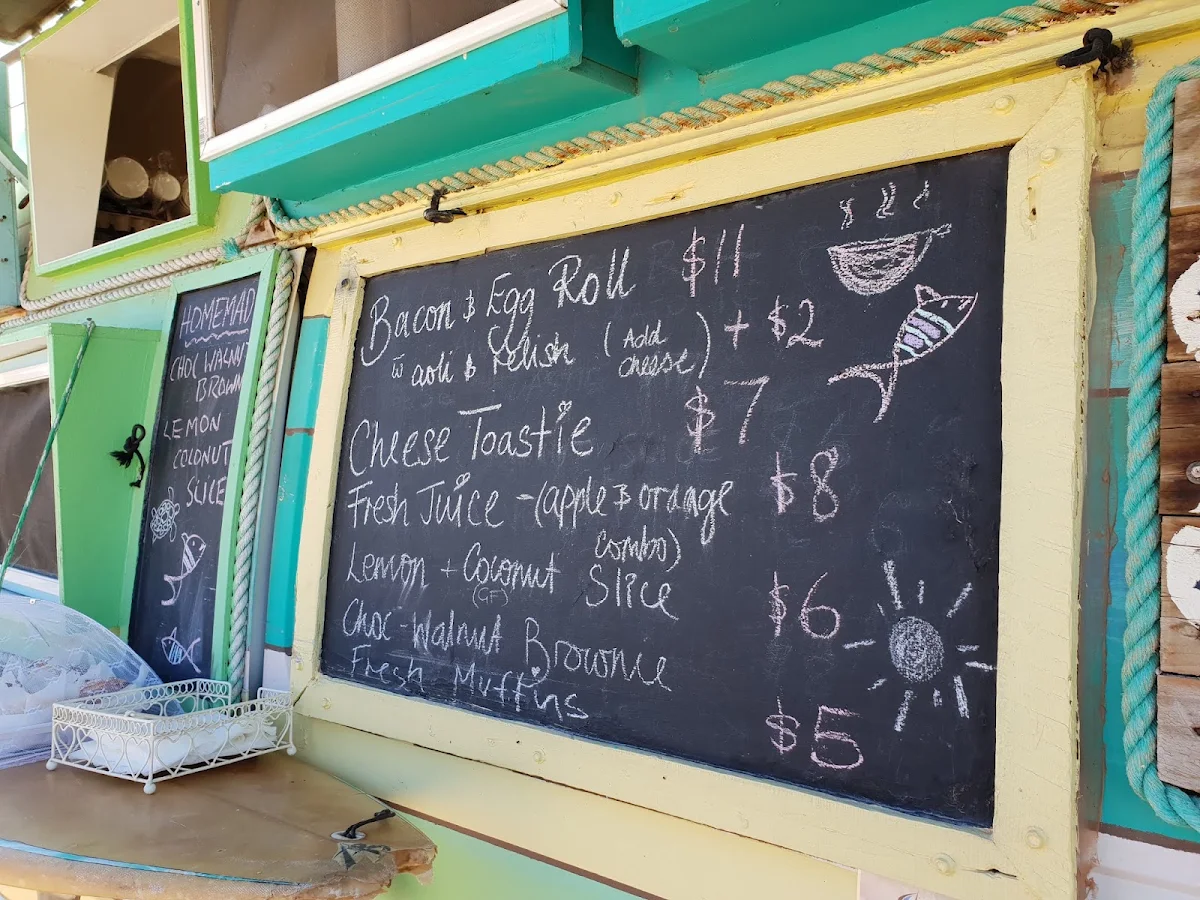 HOMEMAD
CHOC WALNUT
BROWN
LEMON
COCONUT
SLICE
Bacon & Egg Roll $11
w aoli & relish (Add cheese) + $2
Cheese Toastie $7
Fresh Juice - (apple & orange combo) $8
Lemon + Coconut Slice
(GF) $6
Choc-Walnut Brownie
Fresh Muffins $5